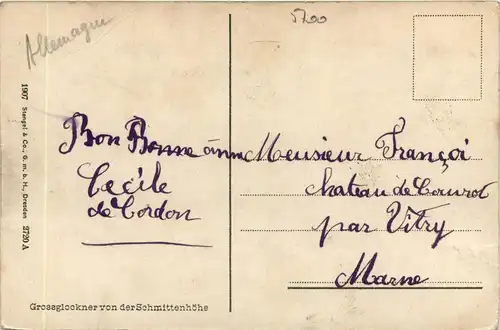 Allemagne
5700
1907 Stengel & Co., G. m. b. H., Dresden 2720 A
Bon Bonne
Cecile
de Cordon
Meusieur Françoi
chateau de
par Vitry
Marne
Grossglockner von der Schmittenhöhe